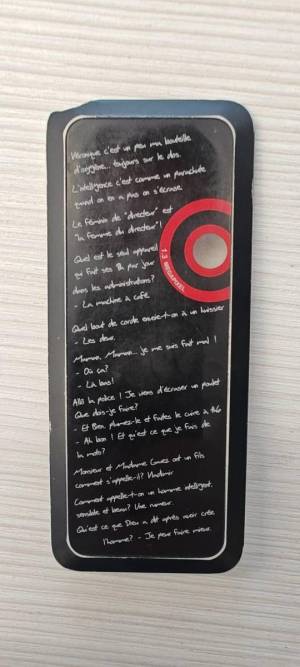 Véronique c'est un peu ma bouteille
d'oxygène... toujours sur le dos.
L'intelligence c'est comme un parachute
quand on en a pas on s'écrase.
Le féminin de "directeur" est
"la femme du directeur"!
Quel est le seul appareil
qui fait ses 8h par jour
dans les administrations?
- La machine à café.
1.3 MEGAPIXEL
Quel bout de corde envoie-t-on à un huissier
- Les deux.
Maman, Maman... je me suis fait mal!
- Où ça?
- Là bas!
Allô la police! Je viens d'écraser un poulet
Que dois-je faire?
- Et Ben plumez-le et faites le cuire à th6
- Ah bon! Et qu'est ce que je fais de
la moto?
Monsieur et Madame Couez ont un fils
comment s'appelle-il? Vladimir
Comment appelle-t-on un homme intelligent,
sensible et beau? Une rumeur.
Qu'est ce que Dieu a dit après avoir crée
l'homme? - Je peux faire mieux.